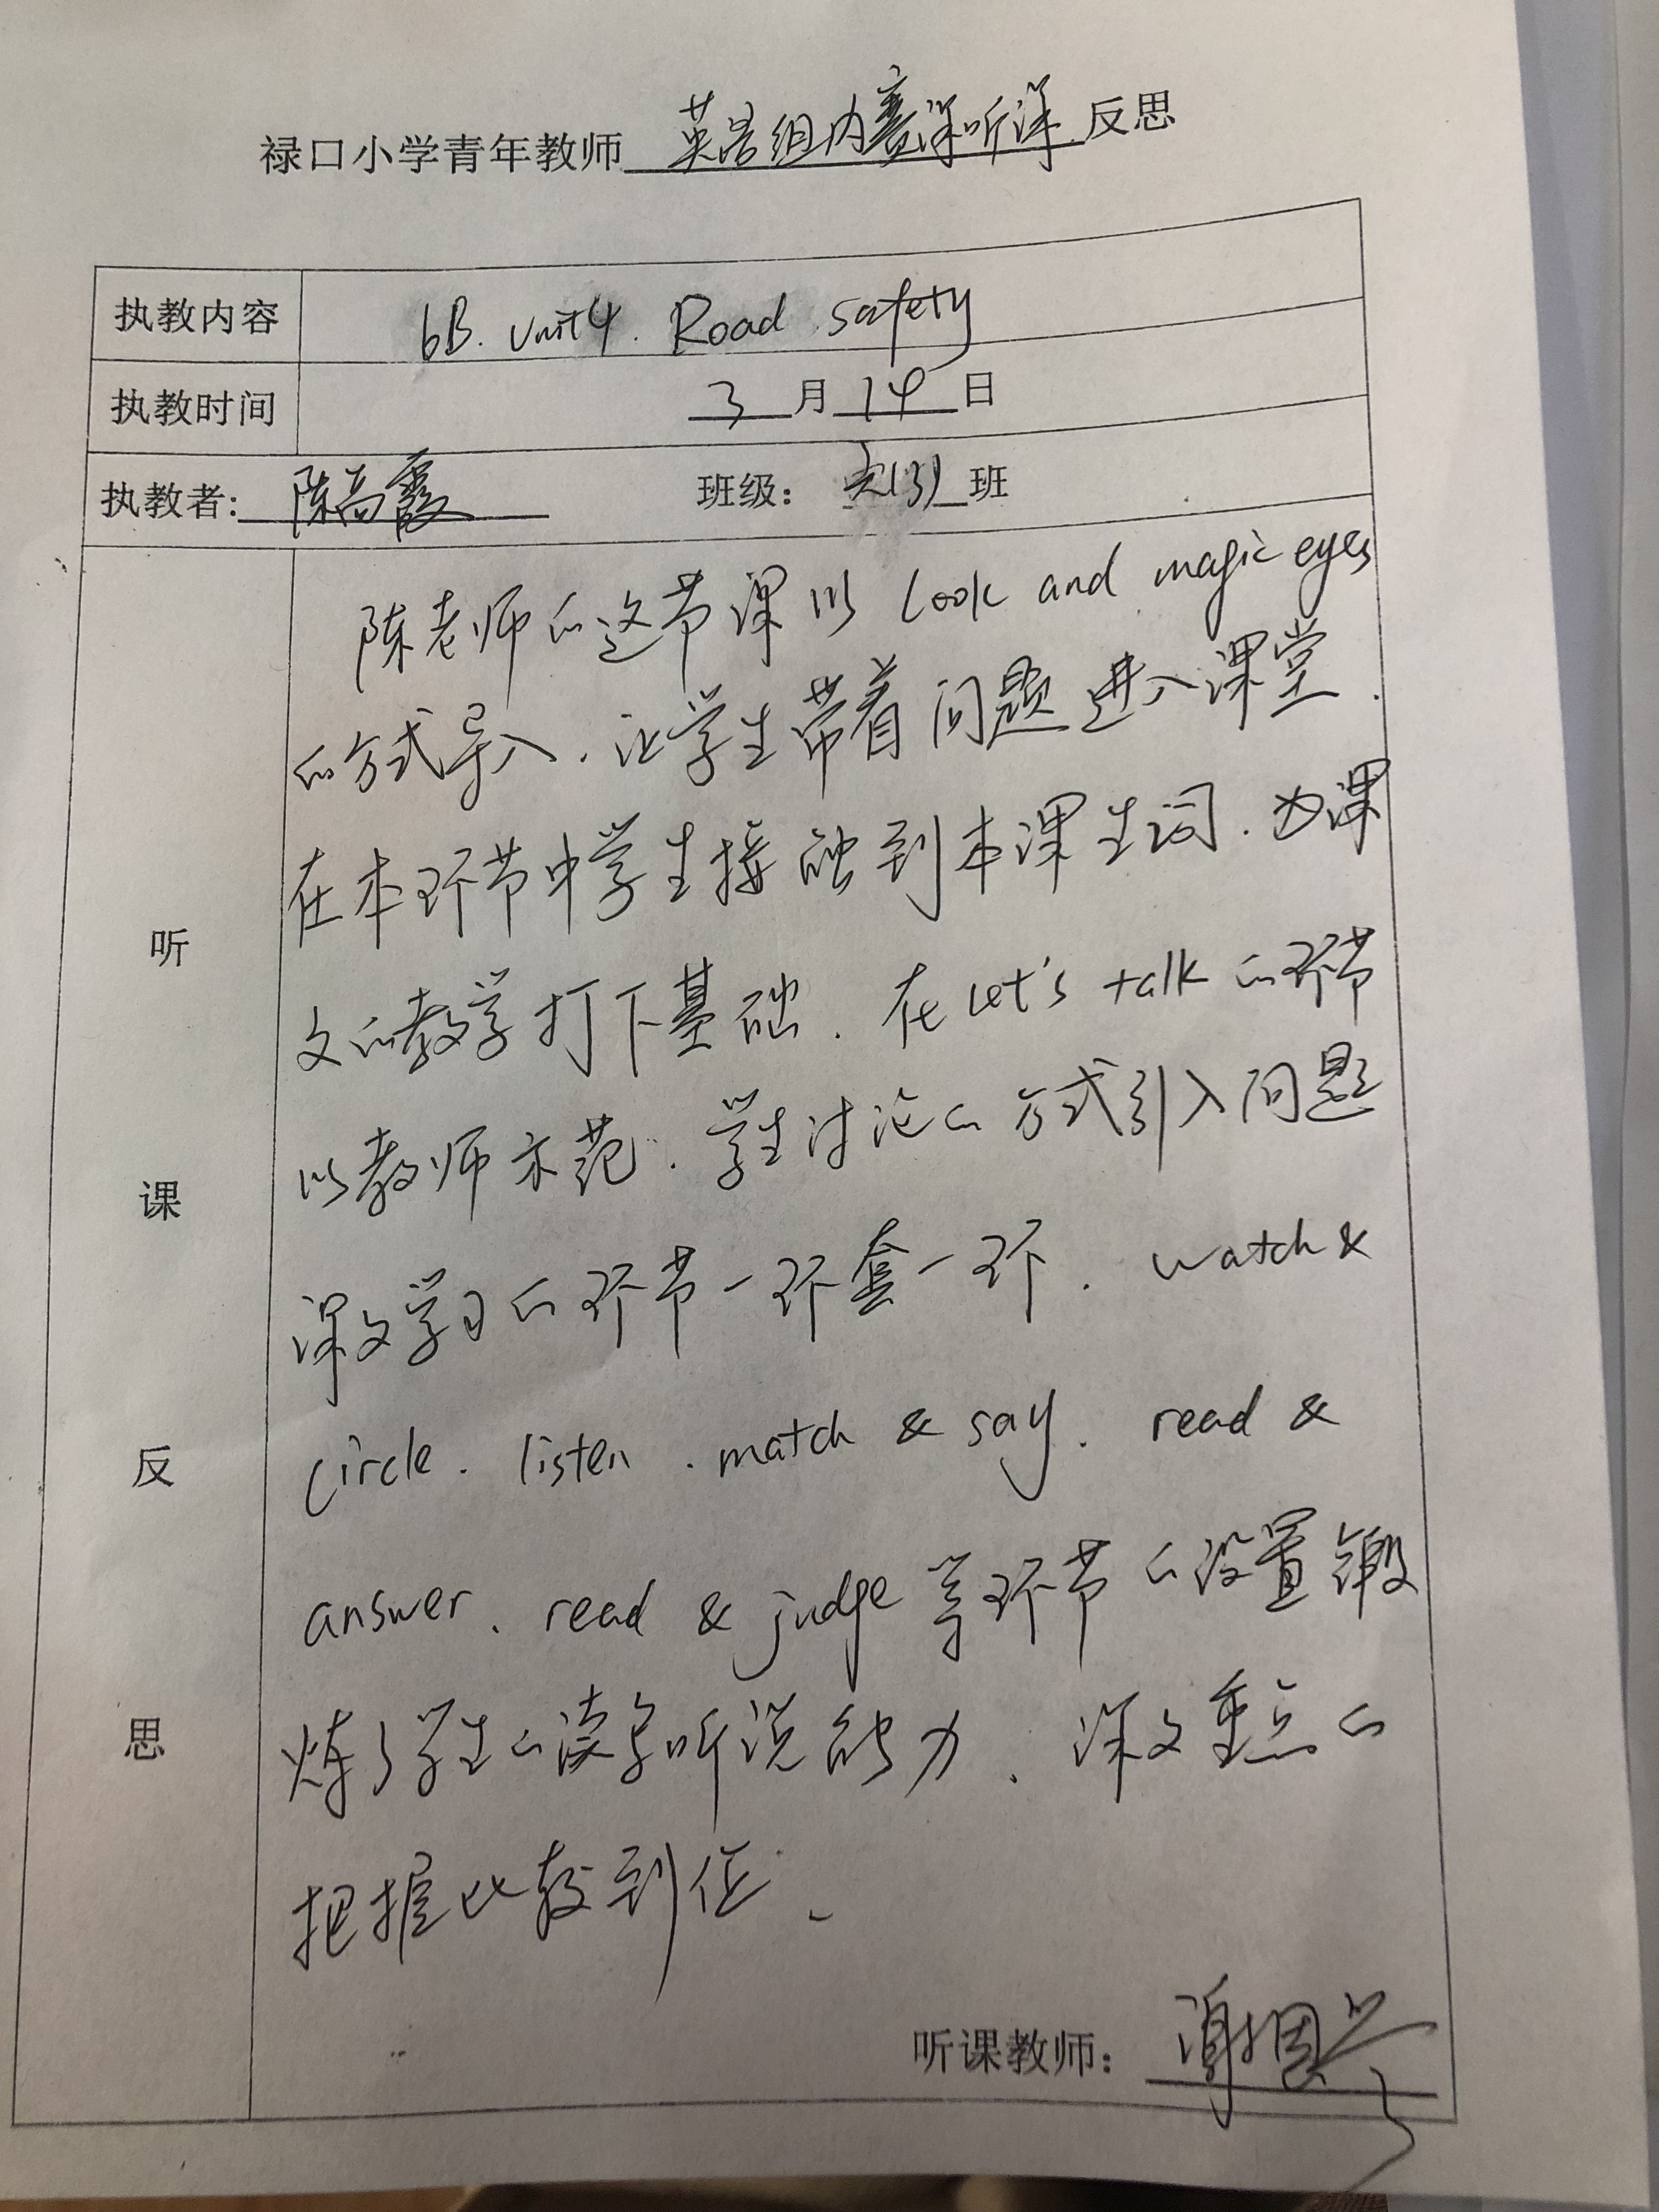 禄口小学青年教师 英语组内赛课听课 反思
执教内容 6B. Unit4. Road safety
执教时间 3 月 14 日
执教者: 陈高霞 班级: 六(3) 班
听课反思
陈老师的这节课以 look and magic eyes
的方式导入.让学生带着问题进入课堂.
在本环节中学生接触到本课生词.为课
文的教学打下基础.在Let's talk的环节
以教师示范.学生讨论的方式引入问题
课文学习的环节一环套一环. watch &
circle. listen. match & say. read &
answer. read & judge等环节的设置锻
炼了学生的读写听说能力. 课文重点的
把握比较到位.
听课教师: